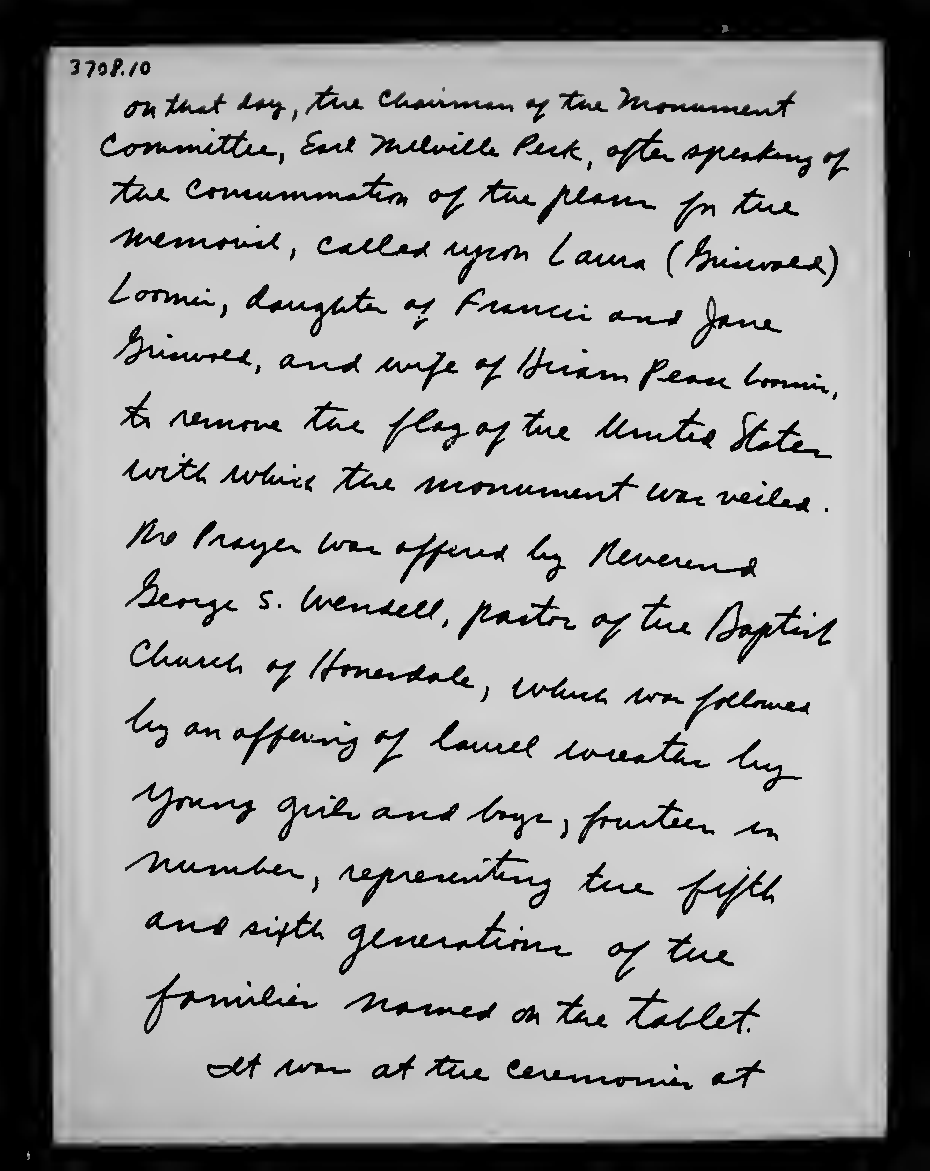 3708.10
on that day, the Chairman of the Monument
Committee, Earl Melville Peck, after speaking of
the consummation of the plans for the
memorial, called upon Laura (Griswold)
Loomis, daughter of Francis and Jane
Griswold, and wife of Hiram Pease Loomis,
to remove the flag of the United States
with which the monument was veiled.
The Prayer was offered by Reverend
George S. Wendell, pastor of the Baptist
Church of Honesdale, which was followed
by an offering of laurel wreaths by
young girls and boys, fourteen in
number, representing the fifth
and sixth generations of the
families named on the tablet.
It was at the ceremonies at